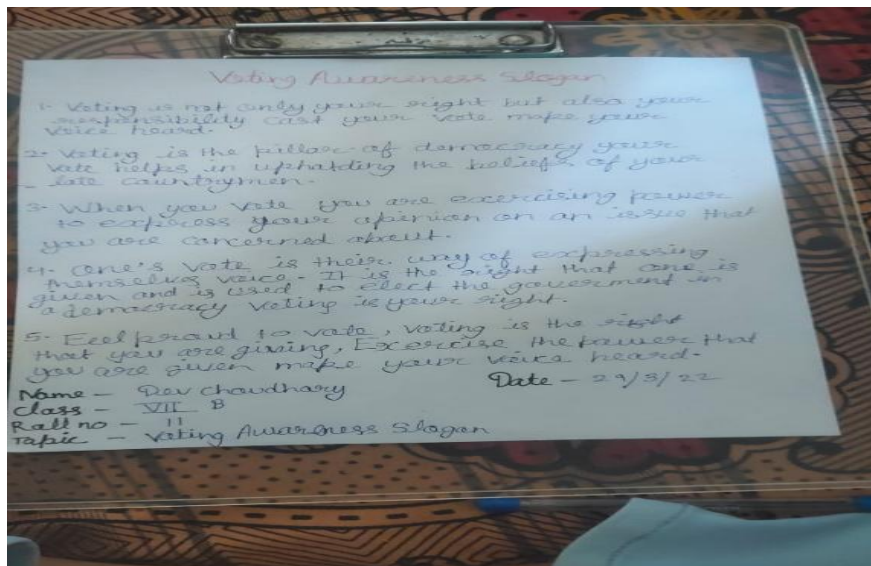 Voting Awareness Slogan
1- Voting is not only your right but also your
responsibility cast your vote make your
voice heard.
2- Voting is the pillar of democracy your
vote helps in uphalding the beliefs of your
late countrymen.
3- When you vote you are excercising power
to express your opinion on an issue that
you are concerned about.
4- one's vote is their way of expressing
themselves voice. It is the right that one is
given and is used to elect the goverment in
a democracy voting is your right.
5- Feel proud to vote, voting is the right
that you are giving, Exercise the power that
you are given make your voice heard.
Name - Dev choudhary Date - 29/3/22
Class - VII B
Roll no - 11
Topic - Voting Awarness Slogan